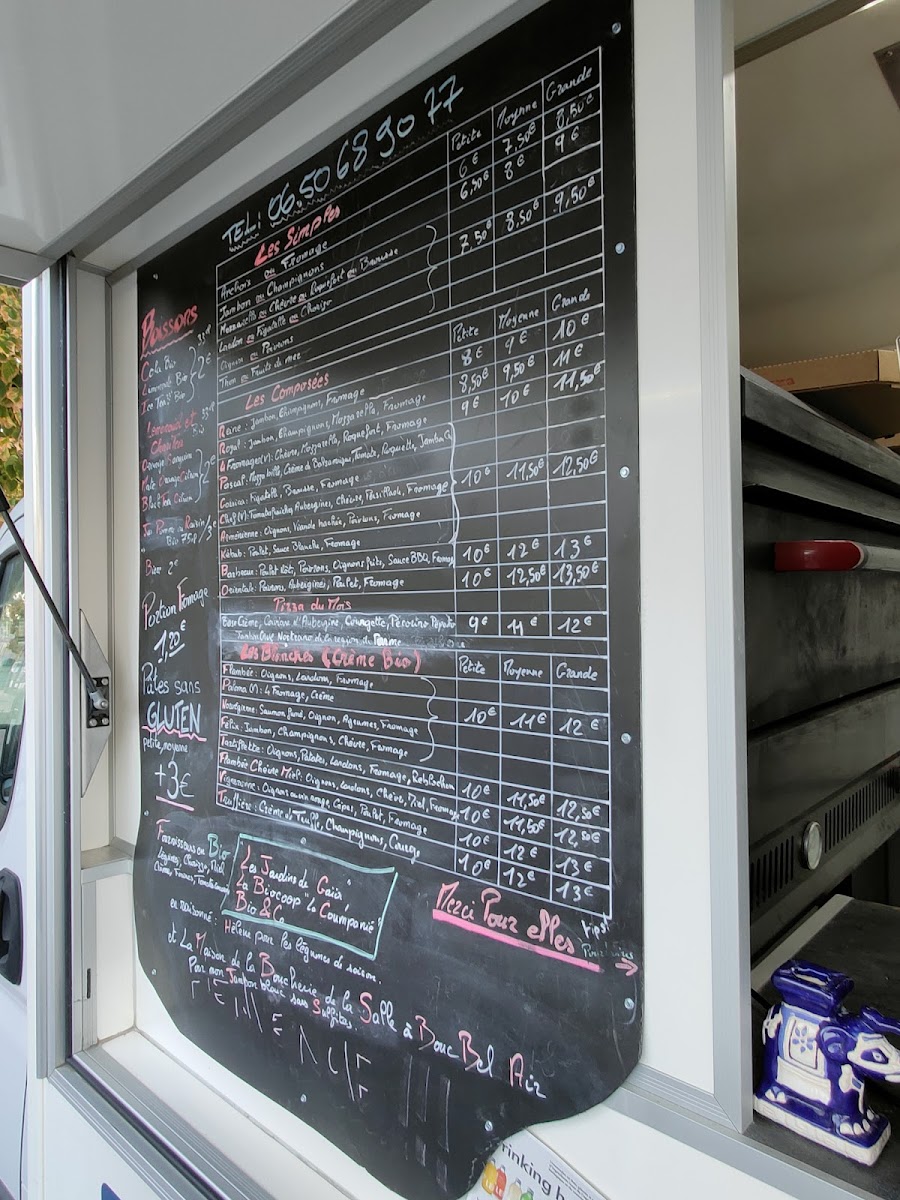 TEL: 06.50689077
Les Simples
Petite Moyenne Grande
Anchois ou Fromage 6€ 7,50€ 8,50€
Jambon ou Champignons 6,50€ 8€ 9€
Mozzarella ou Chèvre ou Roquefort ou Brousse
Lardon ou Figatelle ou Chorizo 7,50€ 8,50€ 9,50€
Oignon ou Poivrons
Thon ou Fruits de mer
Les Composées
Petite Moyenne Grande
Reine: Jambon, Champignons, Fromage 8€ 9€ 10€
Royal: Jambon, Champignons, Mozzarella, Fromage 8,50€ 9,50€ 11€
4 Fromages(v): Chèvre, Mozzarella, Roquefort, Fromage 9€ 10€ 11,50€
Pascal: Mozzarella, Crème de Balsamique, Tomate, Roquette, Jambon
Corsica: Figatelle, Brousse, Fromage
Chef(v): Aubergines, Chèvre, Fromage 10€ 11,50€ 12,50€
Arménienne: Oignons, Viande hachée, Poivrons, Fromage
Kebab: Poulet, Sauce Blanche, Fromage
Barbecue: Poulet rôti, Poivrons, Oignons frits, Sauce BBQ, Fromage 10€ 12€ 13€
Orientale: Poivrons, Aubergines, Poulet, Fromage 10€ 12,50€ 13,50€
Pizza du Mois
Base Crème, d'Aubergine, Courgette, Pecorino 9€ 11€ 12€
de la région de Parme
Les Blanches (Crème Bio)
Petite Moyenne Grande
Flambée: Oignons, Lardons, Fromage
Paloma (v): 4 Fromage, Crème
Norvégienne: Saumon fumé, Oignon, Agrumes, Fromage 10€ 11€ 12€
Félix: Jambon, Champignons, Chèvre, Fromage
Tartiflette: Oignons, Patates, Lardons, Fromage, Reblochon
Flambée Chèvre Miel: Oignons, Lardons, Chèvre, Miel, Fromage 10€ 11,50€ 12,50€
Vigneronne: Oignons au vinaigre, Cèpes, Poulet, Fromage 10€ 11,50€ 12,50€
Truffière: Crème de Truffe, Champignons, Courge 10€ 12€ 13€
10€ 12€ 13€
Boissons
33cl
Cola Bio
Limonade Bio 2€
Ice Tea Bio
Limonade et
33cl
Orange Sanguine
2€
Jus Pomme ou Raisin
Bio 75cl 3€
Bière 2€
Portion Fromage
1,20€
Pâtes sans
GLUTEN
petite, moyenne
+3€
Fournisseurs en Bio
Les Jardins de Gaïa
La Biocoop "La Coumpanié"
Bio & Co
en raisonné:
Hélène pour les légumes de saison.
et La Maison de la Boucherie de la Salle à Bouc Bel Air
Pour mon Jambon blanc sans Sulfites.
Merci Pour elles
tips!
Pourboires
→
rinking